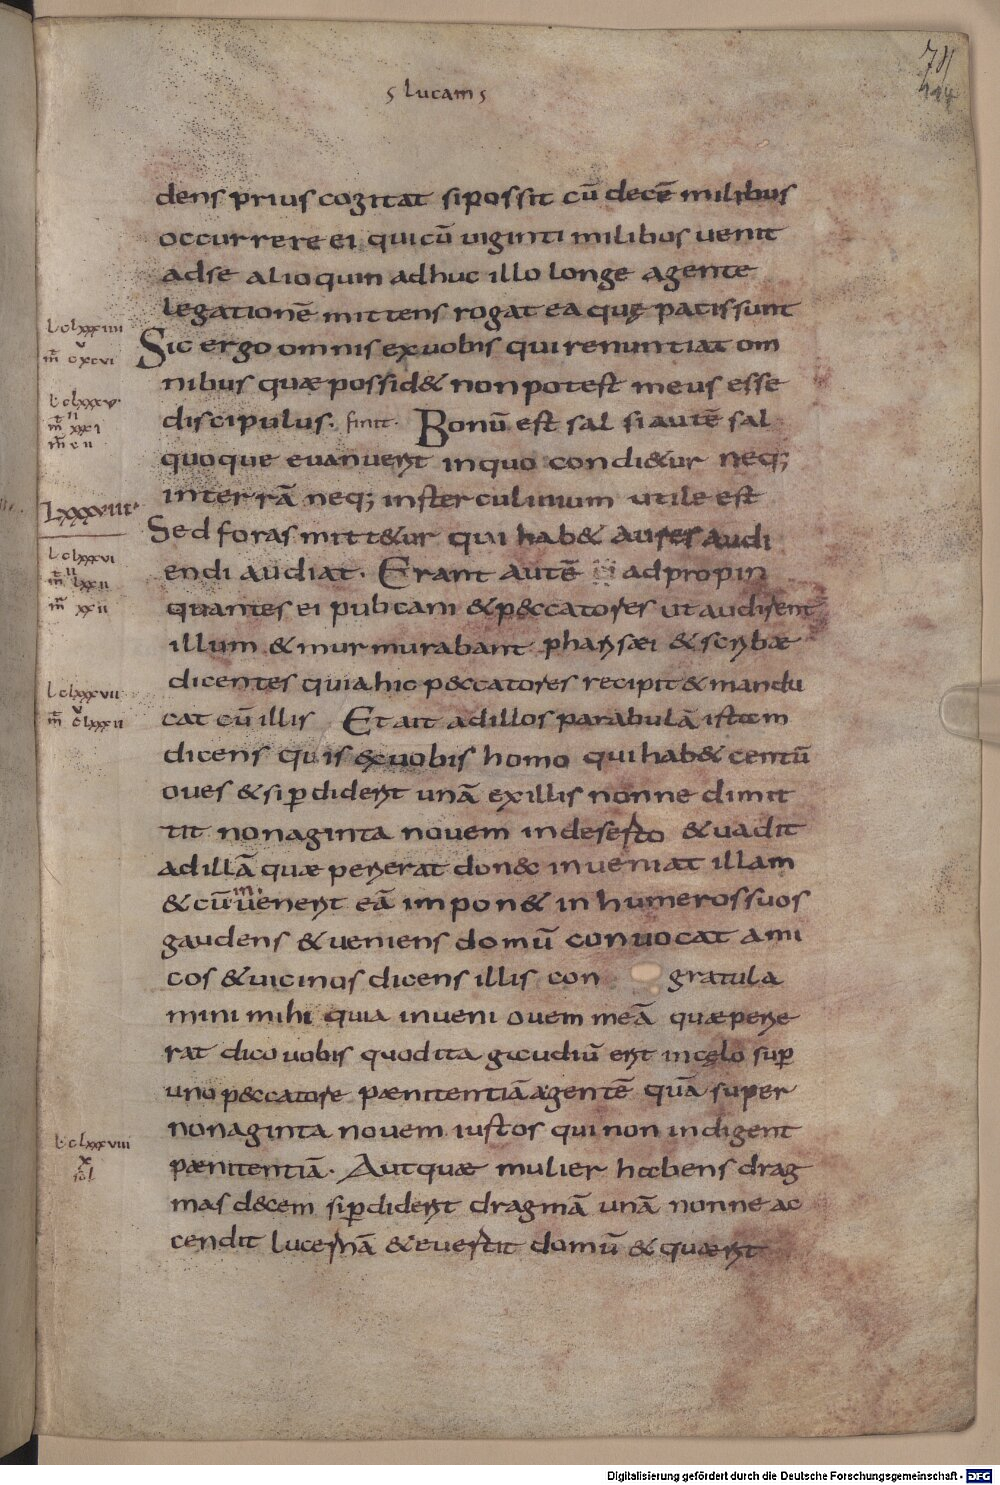 s lucam s
dens prius cogitat sipossit cū decē milibus
occurrere ei quicū uiginti milibus uenit
adse alioquin adhuc illo longe agente
legationē mittens rogat ea quę pacis sunt
Sic ergo omnis exuobis qui renuntiat om
nibus quæ possid& non potest meus esse
discipulus. finit. Bonū est sal si autē sal
quoque euanuerit inquo condi&ur neq;
interrā neq; insterculinium utile est
Sed foras mitt&ur qui hab& aures audi
endi audiat. Erant autē adpropin
quantes ei publicani & p&ccatores ut audirent
illum & murmurabant pharisæi & scribæ
dicentes quia hic p&ccatores recipit & mandu
cat cū illis Et ait adillos parabulā istam
dicens quis &cuobis homo qui hab& centū
oues & si p̄diderit unā exillis nonne dimit
tit nonaginta nouem indeserto & uadit
adillā quæ perierat don&c inueniat illam
& cū in uenerit eā impon& in humeros suos
gaudens & ueniens domū conuocat ami
cos & uicinos dicens illis con gratula
mini mihi quia inueni ouem meā quæ perie
rat dico uobis quod ita gaudiū erit incęlo sup̄
uno p&ccatore pænitentiā agentē quā super
nonaginta nouem iustos qui non indigent
pænitentiā. Aut quæ mulier habens drag
mas d&cem si p̄diderit dragmā unā nonne ac
cendit lucernā & euertit domū & quærit
L clxxxiiii
v
m̄ cxcvi
L clxxxv
m̄ cii
Lxxxviii
L clxxxvi
ii
m̄ lxxii
m̄ xxii
L clxxxvii
v
m̄ clxxxii
L clxxxviii
x
sol
78
Digitalisierung gefördert durch die Deutsche Forschungsgemeinschaft - DFG